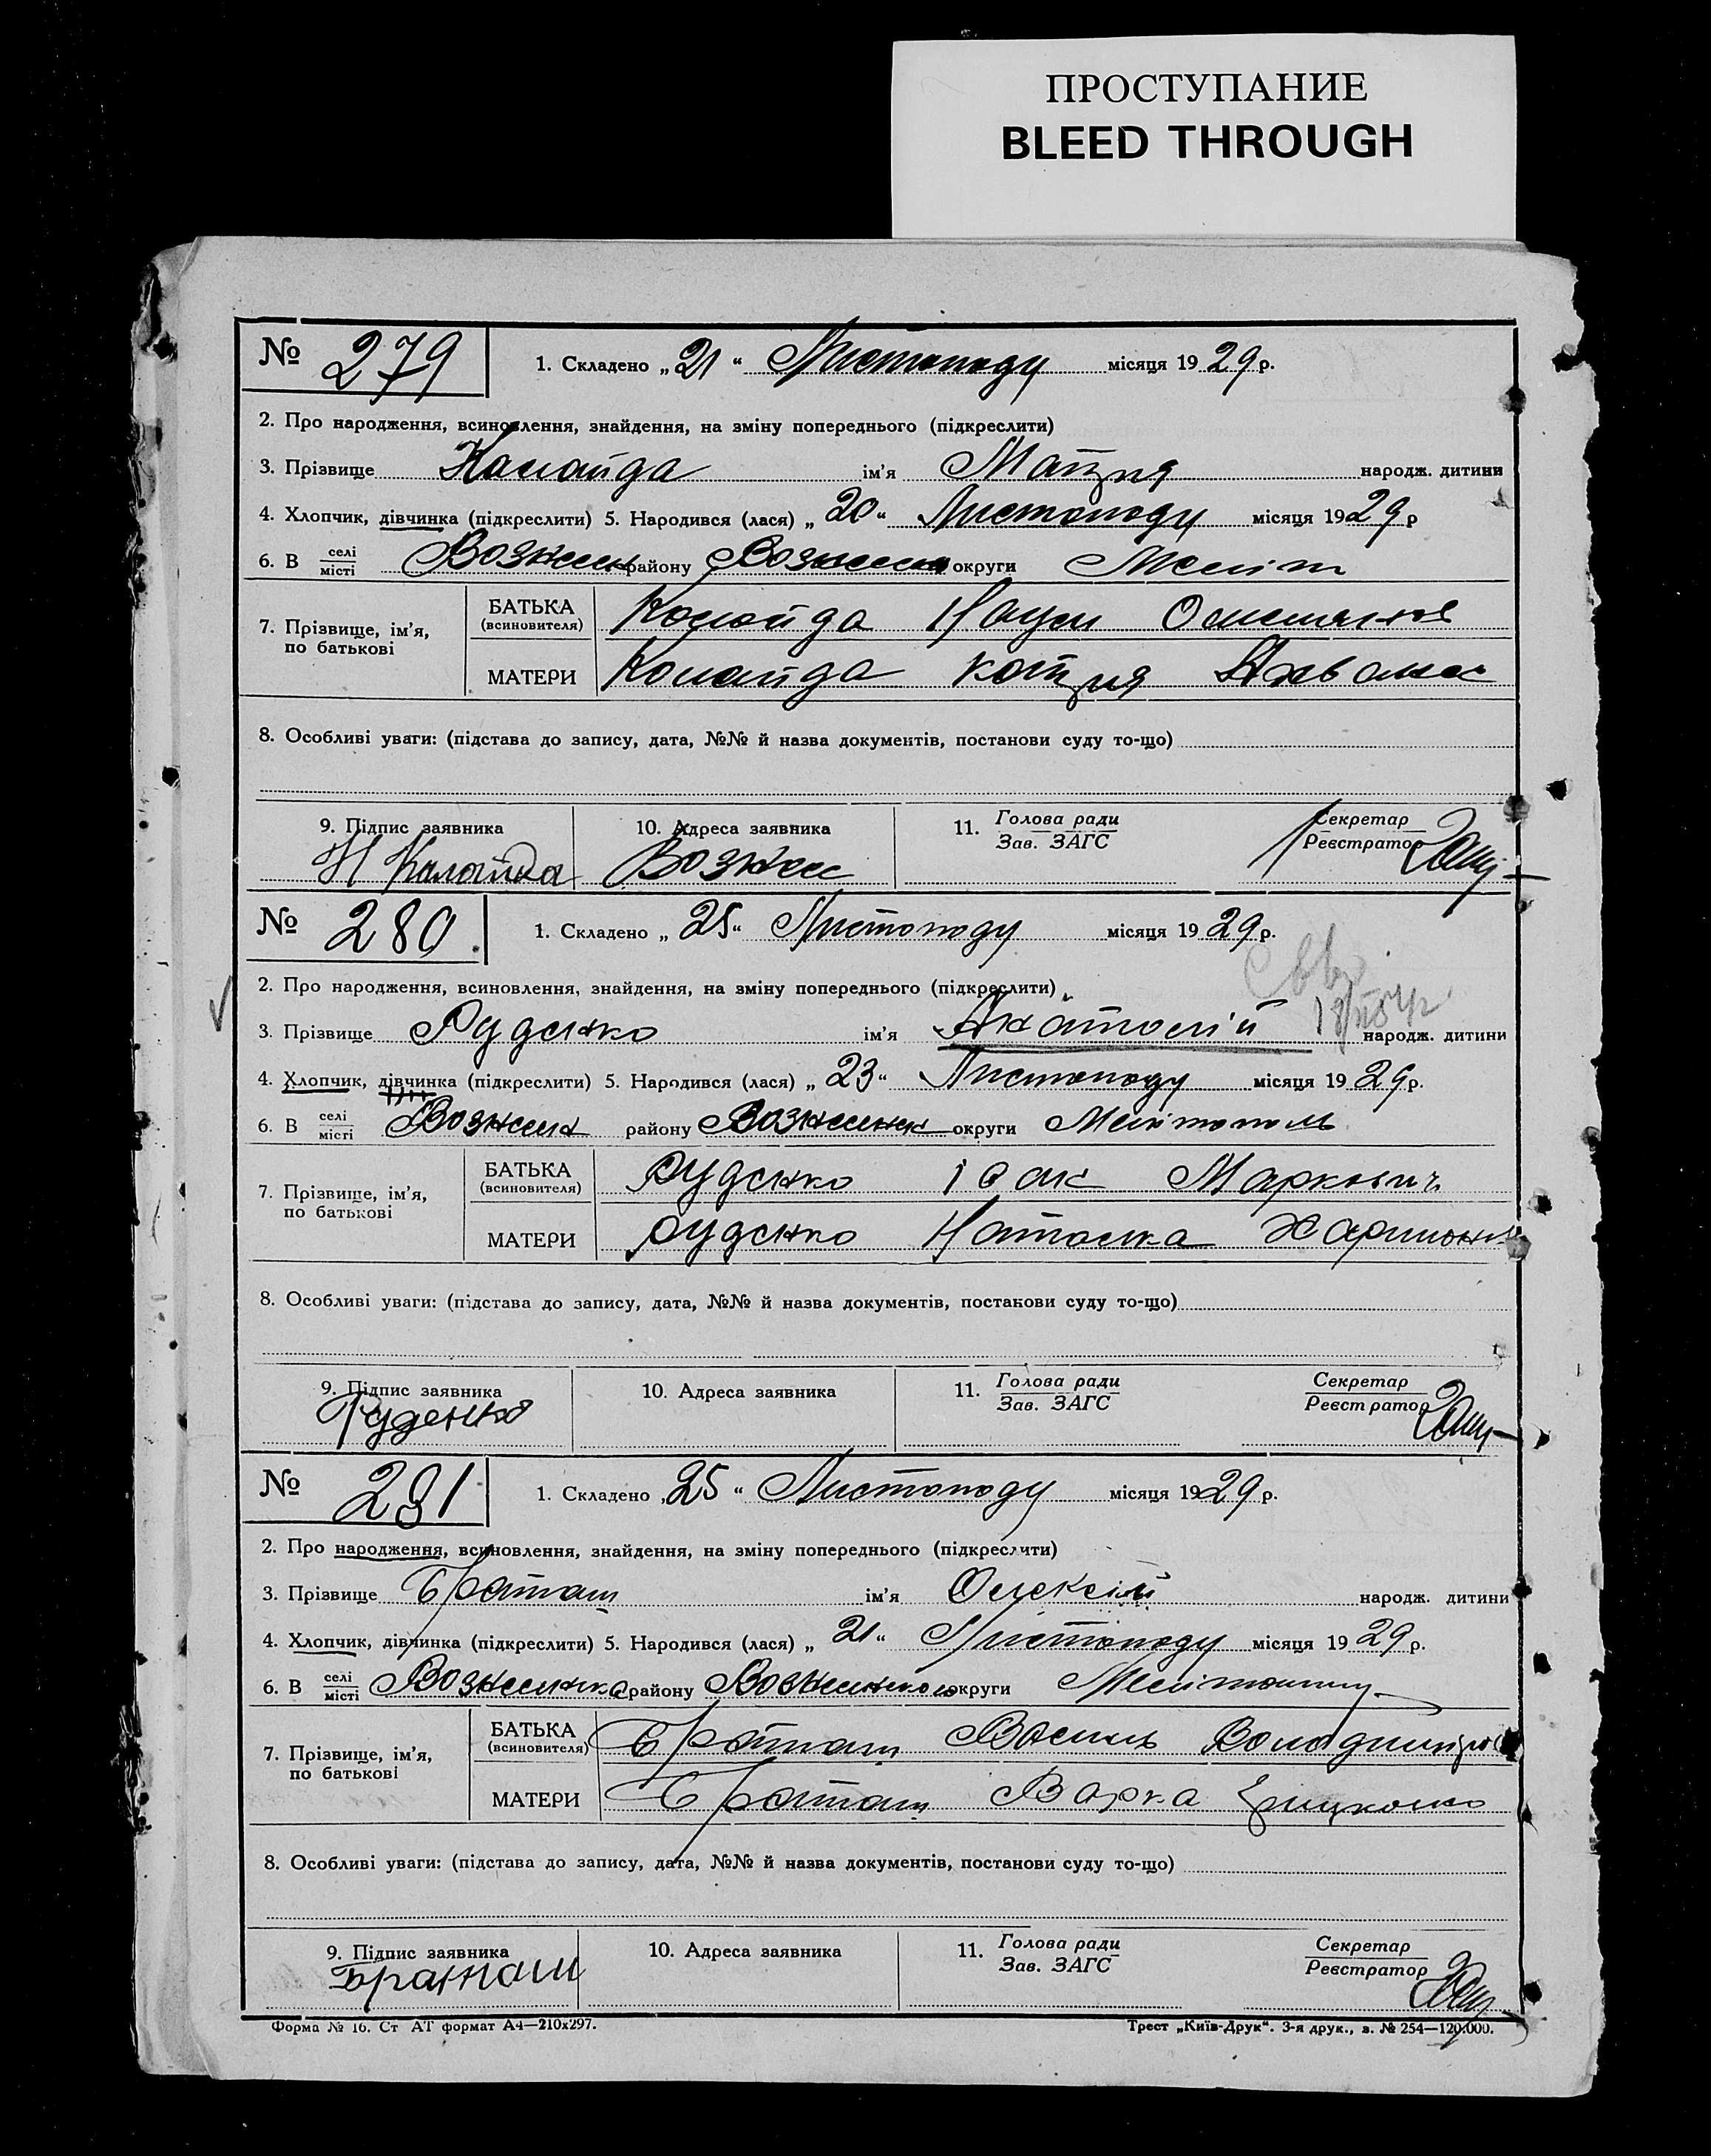 ПРОСТУПАНИЕ
BLEED THROUGH
№ 279 1. Складено „21“ Листопаду місяця 1929 р.
2. Про народження, всиновлення, знайдення, на зміну попереднього (підкреслити)
3. Прізвище Калайда ім'я Матря народж. дитини
4. Хлопчик, дівчинка (підкреслити) 5. Народився (лася) „20“ Листопаду місяця 1929 р
6. В селі/місті Вознесен району Вознесен округи Меліт
7. Прізвище, ім'я, по батькові
БАТЬКА (всиновителя) Калайда Наум
МАТЕРИ Калайда Катря
8. Особливі уваги: (підстава до запису, дата, №№ й назва документів, постанови суду то-що)
9. Підпис заявника 10. Адреса заявника 11. Голова ради Секретар
Зав. ЗАГС Реєстратор
Н Калайда Вознес
№ 280. 1. Складено „25“ Листопаду місяця 1929 р.
2. Про народження, всиновлення, знайдення, на зміну попереднього (підкреслити)
3. Прізвище Руденко ім'я Анатолій народж. дитини
4. Хлопчик, дівчинка (підкреслити) 5. Народився (лася) „23“ Листопаду місяця 1929 р.
6. В селі/місті Вознесен району Вознесенк округи Мелітополь
7. Прізвище, ім'я, по батькові
БАТЬКА (всиновителя) Руденко Ісак Маркович
МАТЕРИ Руденко Наталка
8. Особливі уваги: (підстава до запису, дата, №№ й назва документів, постанови суду то-що)
9. Підпис заявника 10. Адреса заявника 11. Голова ради Секретар
Зав. ЗАГС Реєстратор
Руденко
№ 281 1. Складено „25“ Листопаду місяця 1929 р.
2. Про народження, всиновлення, знайдення, на зміну попереднього (підкреслити)
3. Прізвище Браташ ім'я Олексій народж. дитини
4. Хлопчик, дівчинка (підкреслити) 5. Народився (лася) „21“ Листопаду місяця 1929 р.
6. В селі/місті Вознесенка району Вознесенсько округи
7. Прізвище, ім'я, по батькові
БАТЬКА (всиновителя) Браташ Василь Володимиров
МАТЕРИ Браташ Варка
8. Особливі уваги: (підстава до запису, дата, №№ й назва документів, постанови суду то-що)
9. Підпис заявника 10. Адреса заявника 11. Голова ради Секретар
Зав. ЗАГС Реєстратор
Браташ
Форма № 16. Ст АТ формат А4—210х297. Трест „Київ-Друк“. 3-я друк., з. № 254—120.000.